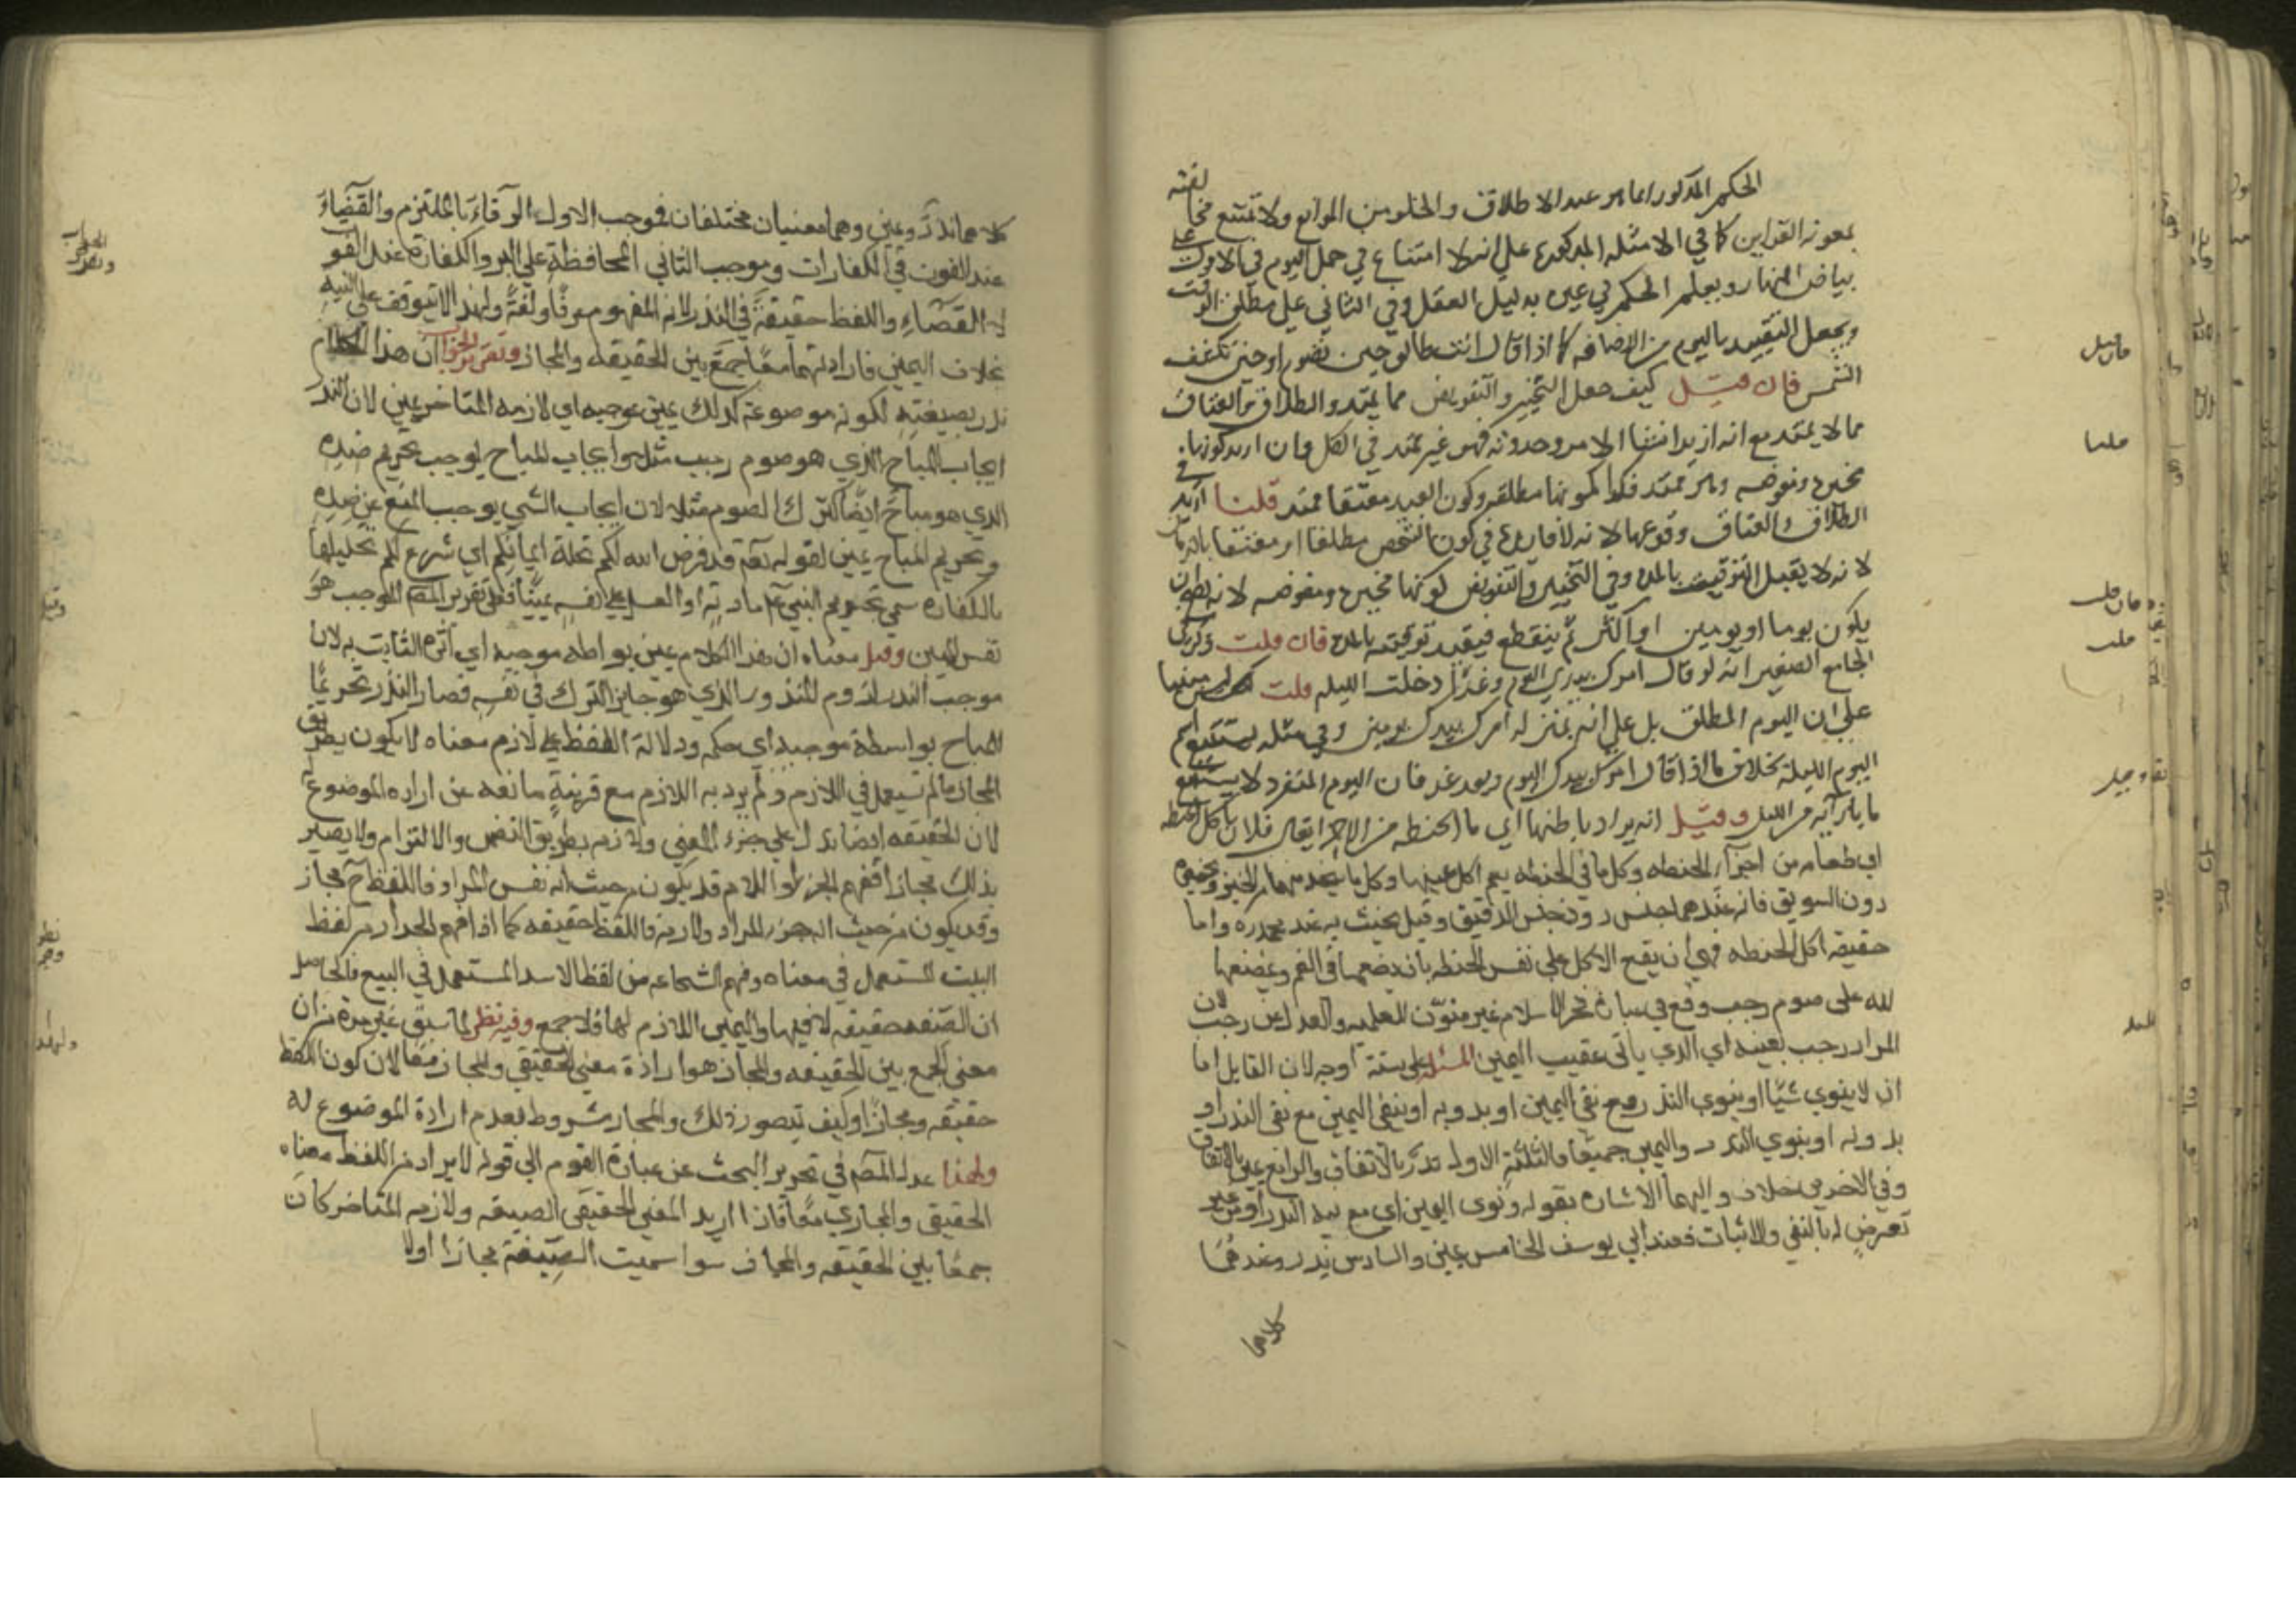 الحكم المذكور انما هو عند الاطلاق والخلو من الموانع ولا تمتنع مخالفته
بمعونه القراين كما في الامثله المذكورة علي انه لا امتناع في حمل اليوم في الاول علي
بياض النهار ويعلم الحكم في غيره بدليل العقل وفي الثاني علي مطلق الوقت
ويجعل التقييد باليوم من الاضافه كما اذا قال انت طالق حين تصوم او حين تكسف
الشمس فان قيل كيف جعل التخيير والتفويض مما يمتد والطلاق والعتاق
مما لا يمتد مع انه ان اريد انشا الامر وحدوثه فهو غير ممتد في الكل وان اريد كونها
مخيرة ومفوضه وهو ممتد فكذا كونها مطلقه وكون العبد معتقا ممتد قلنا اريد في
الطلاق والعتاق وقوعهما لانه لا فايدة في كون الشخص مطلقا او معتقا بالزمان
لانه لا يقبل التوقيت بالمدة وفي التخيير والتفويض كونها مخيره ومفوضه لانه يصح ان
يكون يوما او يومين او اكثر ثم ينقطع فيفيد توقيته بالمدة فان قلت ذكر في
الجامع الصغير انه لو قال امرك بيدك اليوم وغدا دخلت الليله قلت ليس مبنيا
علي ان اليوم المطلق بل علي انه بمنزله امرك بيدك يومين وفي مثله يستتبع اسم
اليوم الليلة بخلاف ما اذا قال امرك بيدك اليوم وبعد غد فان اليوم المنفرد لا يستتبع
ما بازآئه من الليل وقيل انه يراد باطنها اي ما في الحنطه من الاجزا يقال فلان ياكل الحنطه
اي طعامه من اجزآء الحنطه وكل ما في الحنطه يعم اكل عينها وكل ما يتخذ منها من الخبز ونحوه
دون السويق فانه عندهما جنس دون جنس الدقيق وقيل يحنث به عند محمد ره واما
حقيقه اكل الحنطه فهي ان يقع الاكل علي نفس الحنطه بان يضعها في الفم ويمضغها
لله على صوم رجب وقع في عبارة فخر الاسلام غير منون للعلميه والعدل عن رجب لان
المراد رجب بعينه اي الذي ياتي عقيب اليمين المسئله علي ستة اوجه لان القايل اما
ان لا ينوي شيئا او ينوي النذر مع نفي اليمين او بدونه او ينوي اليمين مع نفي النذر او
بدونه او ينوي النذر واليمين جميعا فالثلثة الاول نذر بالاتفاق والرابع يمين بالاتفاق
وفي الاخيرين خلاف واليهما الاشارة بقوله ونوى اليمين اي مع نيه النذر او من غير
تعرض له بالنفي والاثبات فعند ابي يوسف الخامس يمين والسادس نذر وعندهما
كلاهما
كلاهما نذر ويمين وهما معنيان مختلفان فموجب الاول الوفآء بالملتزم والقضآء
عند الفوت في الكفارات وموجب الثاني المحافظة علي البر والكفارة عند الفوت
لا القضآء واللفظ حقيقة في النذر لانه المفهوم عرفا ولغة ولهذا لا يتوقف علي النيه
بخلاف اليمين فارادتهما معا جمع بين الحقيقه والمجاز وتقرير الجواب ان هذا الكلام
نذر بصيغته لكونه موضوعة لذلك يمين بموجبه اي لازمه المتاخر عين لان النذر
ايجاب المباح الذي هو صوم رجب مثلا وايجاب المباح يوجب تحريم ضده
الذي هو مباح ايضا كترك الصوم مثلا لان ايجاب الشي يوجب المنع عن ضده
وتحريم المباح يمين لقوله تعالى قد فرض الله لكم تحلة ايمانكم اي شرع لكم تحليلها
بالكفاره سمي تحريم النبي عم مارية او العسل علي نفسه يمينا فعلى تقرير المص الموجب هو
نفس اليمين وقيل معناه ان هذا الكلام يمين بواسطه موجبه اي اثره الثابت به لان
موجب النذر لزوم المنذور الذي هو جايز الترك في نفسه فصار النذر تحريما
للمباح بواسطة موجبه اي حكمه ودلالة اللفظ علي لازم معناه لا يكون بطريق
المجاز ما لم يستعمل في اللازم ولم يرد به اللازم مع قرينة مانعه عن اراده الموضوع له
لان الحقيقه ايضا تدل علي جزء المعني ولازمه بطريق التضمن والالتزام ولا يصير
بذلك مجازا ففهم الجزء او اللازم قد يكون من حيث انه نفس المراد فاللفظ ح مجاز
وقد يكون من حيث انه جزء المراد ولازمه فاللفظ حقيقه كما اذا فهم الجدار من لفظ
البيت المستعمل في معناه وفهم الشجاعه من لفظ الاسد المستعمل في السبع فالحاصل
ان الصيغه حقيقه لا فيها واليمين اللازم لها فلا جمع وفيه نظر لما سبق غير مرة من ان
معنى الجمع بين الحقيقه والمجاز هو ارادة معني الحقيقي والمجاز معا لان كون اللفظ
حقيقه ومجازا وكيف يتصور ذلك والمجاز مشروط بعدم ارادة الموضوع له
ولهذا عدل المص في تحرير البحث عن عبارة القوم الي قوله لا يراد من اللفظ معناه
الحقيقي والمجازي معا فاذا اريد المعني الحقيقي للصيغه ولازمه المتاخر كان
جمعا بين الحقيقه والمجاز سوا سميت الصيغة مجازا او لا
فان قيل
قلنا
فان قلت
قلت